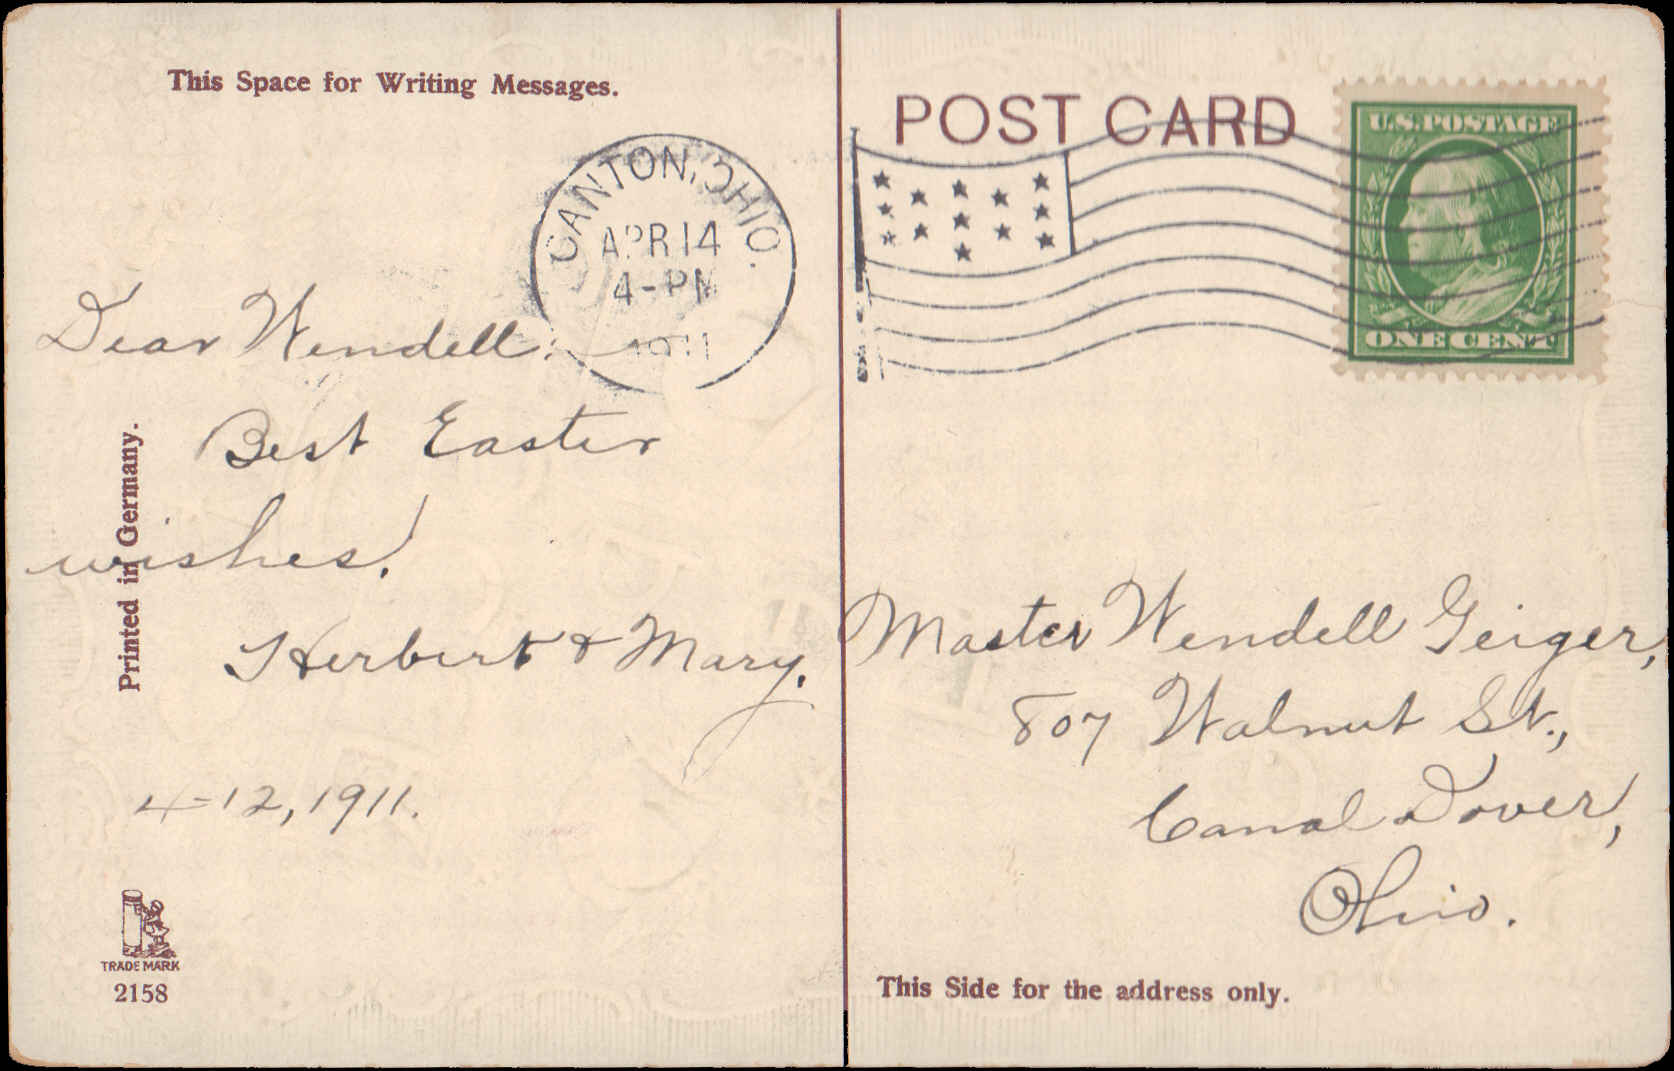 This Space for Writing Messages.
CANTON, OHIO.
APR 14
4-PM
1911
Dear Wendell:
Best Easter
wishes!
Herbert & Mary.
4-12, 1911.
Printed in Germany.
TRADE MARK
2158
POST CARD
U.S. POSTAGE
ONE CENT
Master Wendell Geiger,
807 Walnut St.,
Canal Dover,
Ohio.
This Side for the address only.